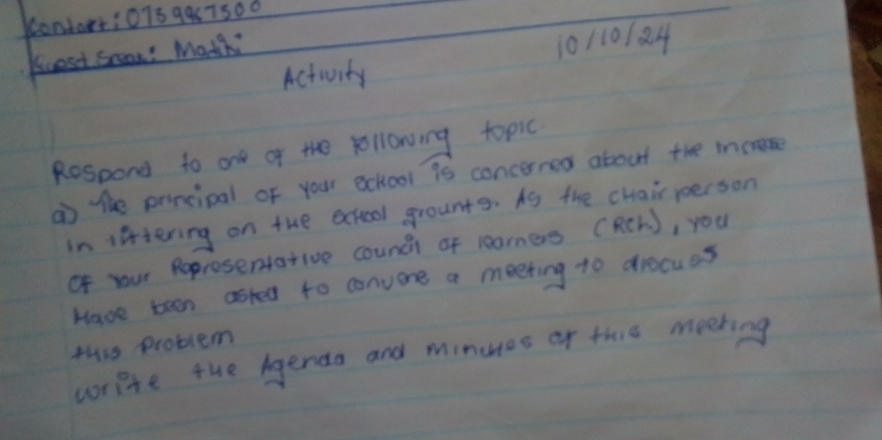 Contact: 0759987500
10/10/24
Activity
Respond to one of the following topic.
a) The principal of your school is concerned about the increase
in littering on the school grounts. As the chairperson
of your Representative council of learners (RCL), you
Have been asked to convene a meeting to discuss
this problem
write the Agenda and minutes of this meeting